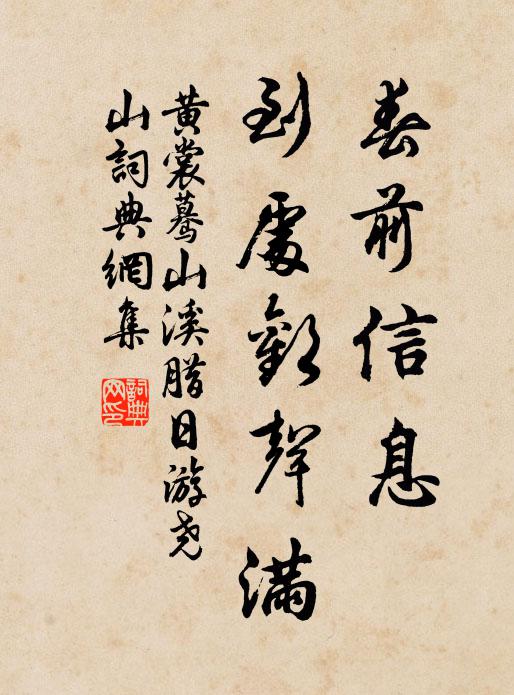 春前信息
到處歡聲滿
黃裳驀山溪腊日游尧
山詞典網集
詞典
网印